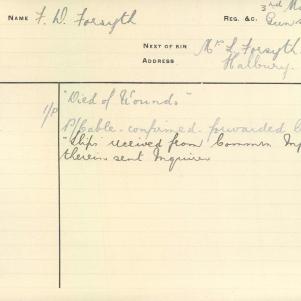 NAME F. D. Forsyth
REG. &C. 3rd
NEXT OF KIN Mr L. Forsyth
ADDRESS Halbury.
"Died of Wounds"
1/P
P/Cable - confirmed - forwarded
"Slips received from Common
therein sent Inquirer